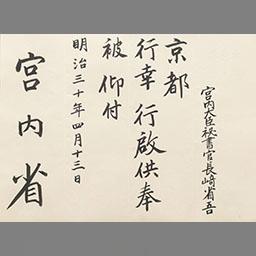 宮内大臣秘書官長崎省吾
京都
行幸 行啟供奉
被 仰付
明治三十年四月十三日
宮内省